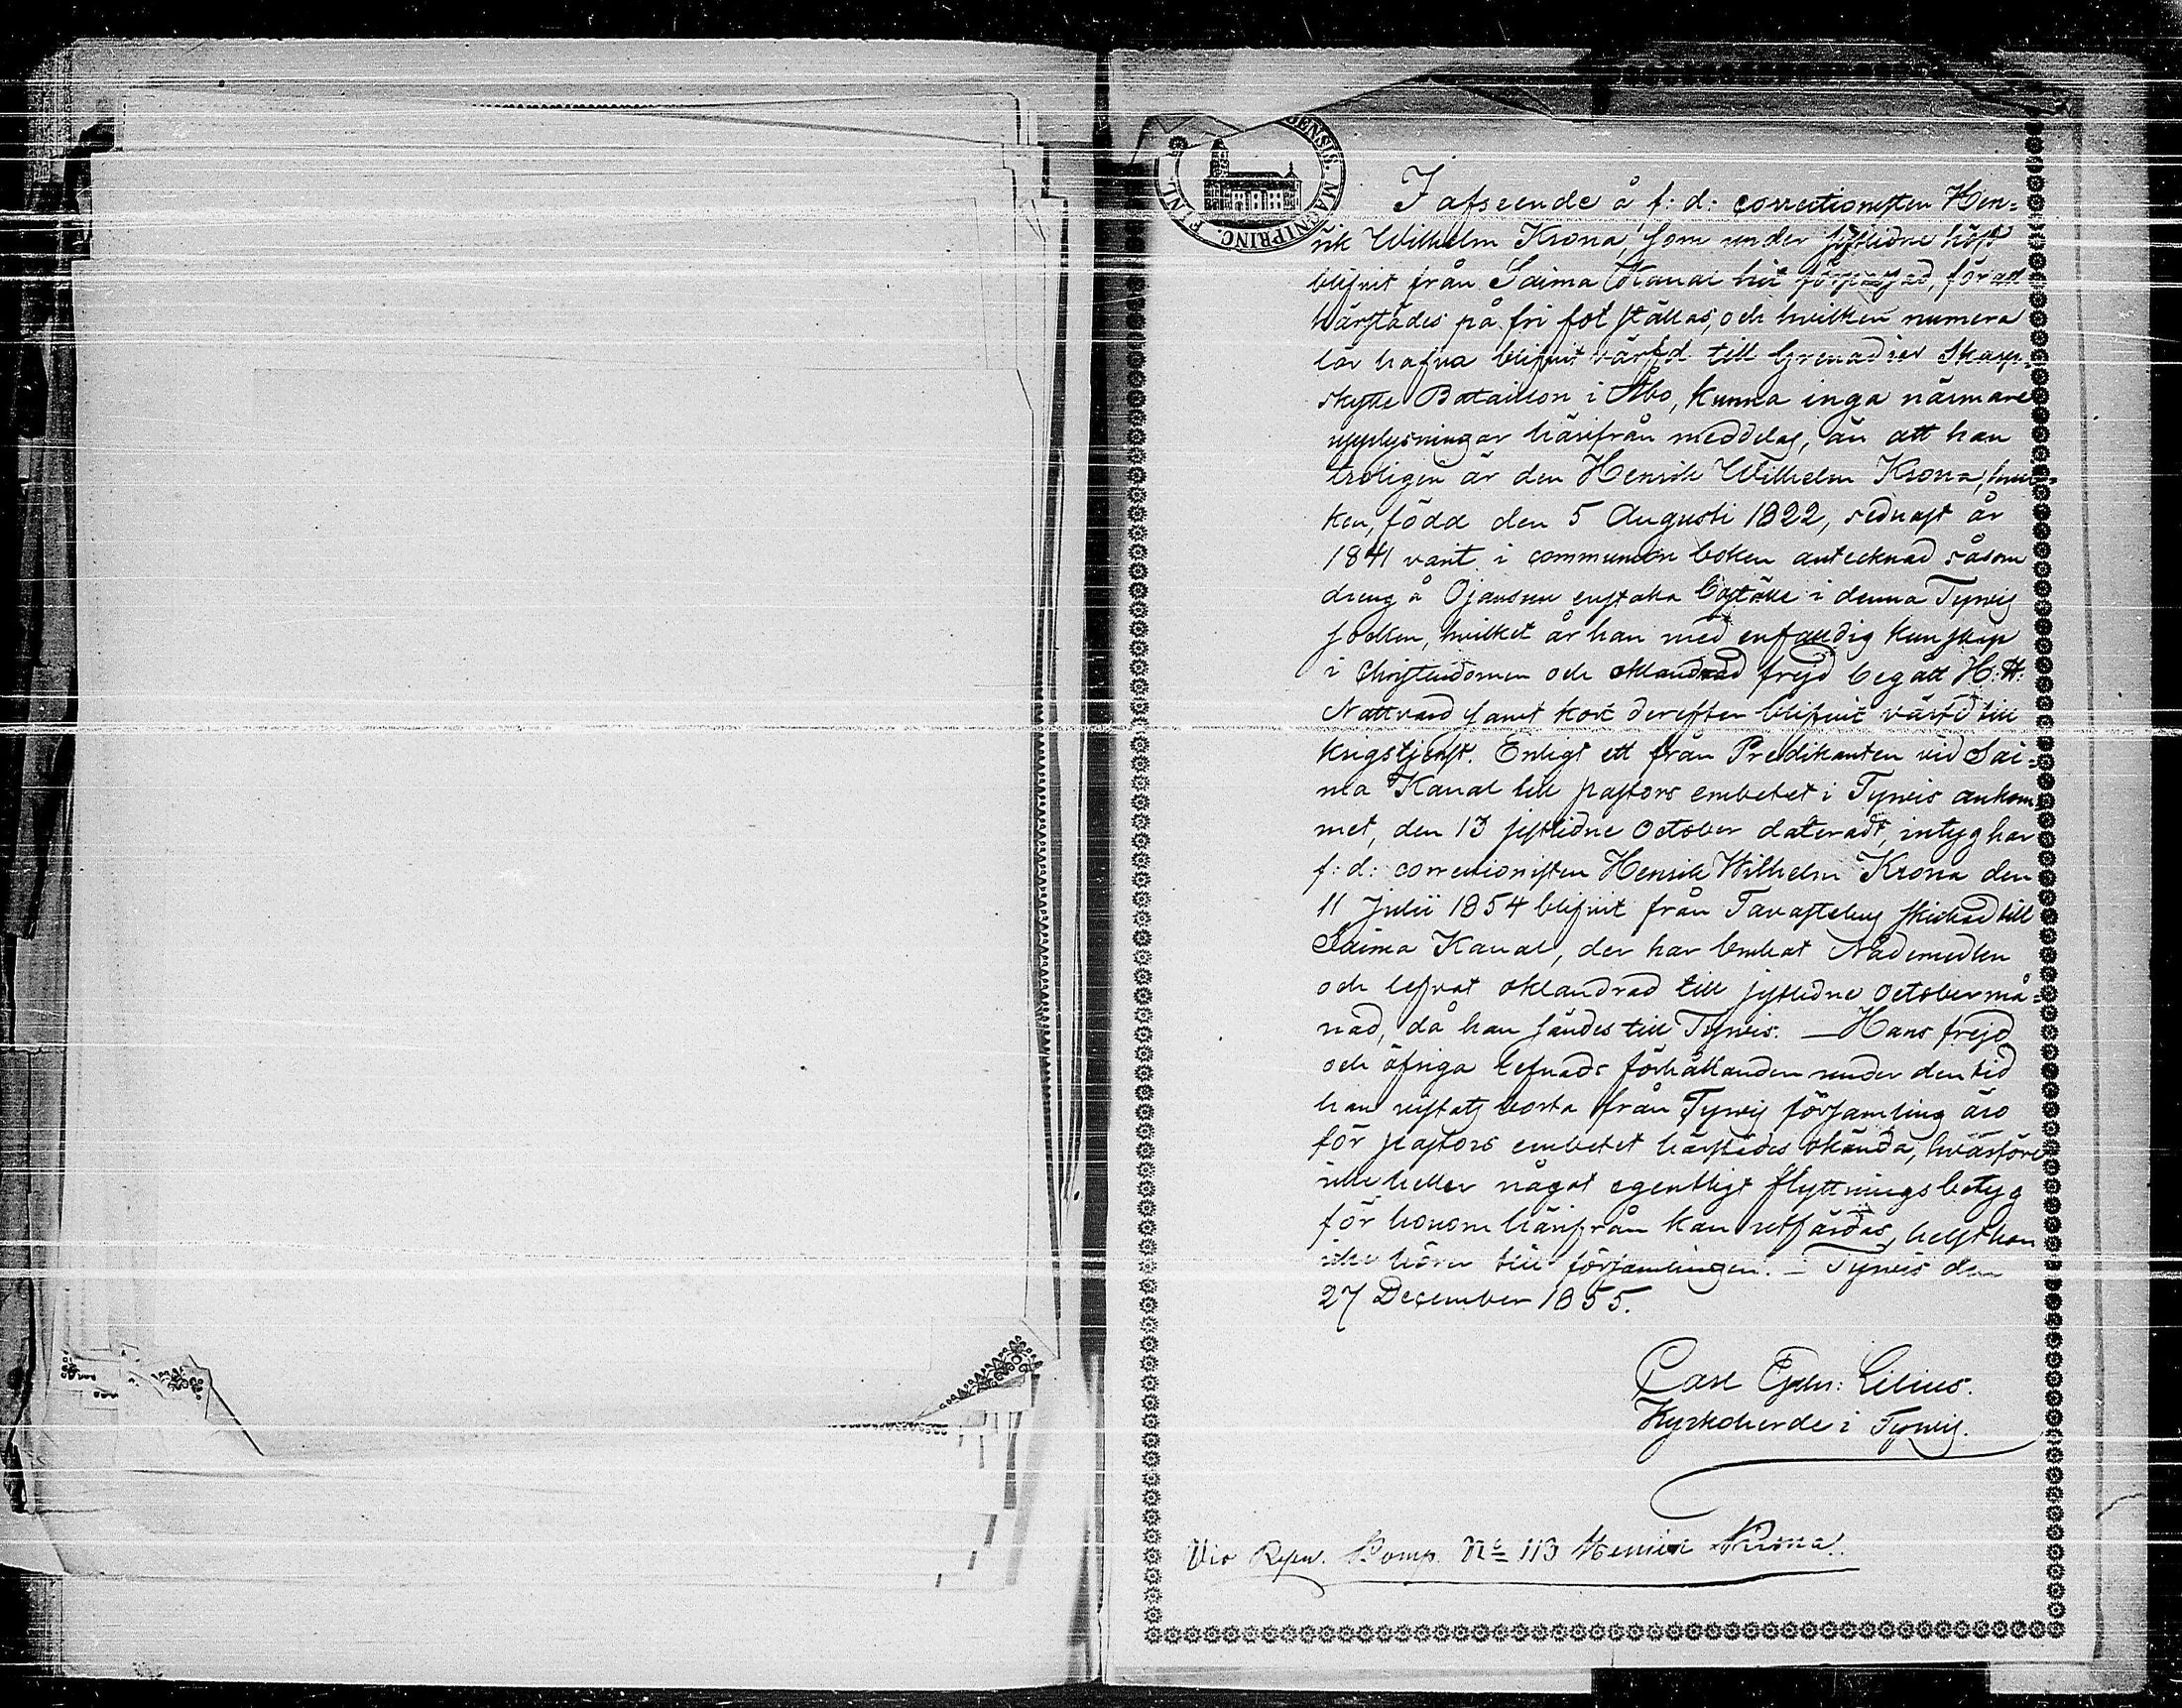 BENSIS. MAGNIPRINC. FINL.
I afseende å f: d: correctionisten Hen-
rik Wilhelm Krona, som under sistlidne höst
blifvit från Saima Kanal hit förpassad, för att
härstädes på fri fot ställas, och hvilken numera
lär hafva blifvit värfd till Grenadier Skarp-
skytte Bataillon i Åbo, kunna inga närmare
upplysningar härifrån meddelas, än att han
troligen är den Henrik Wilhelm Krona, hvil-
ken, född den 5 Augusti 1822, sednast år
1841 varit i communion boken antecknad såsom
dreng å Ojansuu enstaka Boställe i denna Tyrvis
socken, hvilket år han med enfaldig kunskap
i Christendomen och oklandrad frejd begått H. H.
Nattvard samt kort derefter blifvit värfd till
krigstjenst. Enligt ett från Predikanten vid Sai-
ma Kanal till pastors embetet i Tyrvis ankom-
met, den 13 sistlidne October dateradt, intyg har
f: d: correctionisten Henrik Wilhelm Krona den
11 Julii 1854 blifvit från Tavastehus skickad till
Saima Kanal, der har brukat Nådemedlen
och lefvat oklandrad till sistlidne October må-
nad, då han sändes till Tyrvis. — Hans frejd
och öfriga lefnads förhållanden under den tid
han vistats borta från Tyrvis församling äro
för pastors embetet härstädes okända, hvarföre
icke heller något egentligt flyttningsbetyg
för honom härifrån kan utfärdas, helst han
icke hörer till församlingen. — Tyrvis den
27 December 1855.
Carl Lilius.
Kyrkoherde i Tyrvis.
Vid Komp. No 113 Henrik Krona.